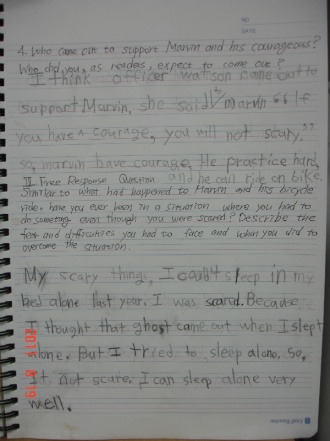 NO
DATE
4. Who came out to support Marvin and his courageous?
Who did you, as readers, expect to come out?
I think officer watson came out to
support Marvin, she said to marvin "If
you have a courage, you will not scary."
so, marvin have courage. He practice hard,
II Free Response Question and he can ride on bike.
Similar to what had happened to Marvin and his bicycle
ride, have you ever been in a situation where you had to
do something even though you were scared? Describe the
fear and difficulties you had to face and what you did to
overcome the situation.
My scary things, I could't sleep in my
bed alone last year. I was scared. Because
I thought that ghost came out when I slept
alone. But I tried to sleep alone. So,
It not scare. I can sleep alone very
well.
morning glory